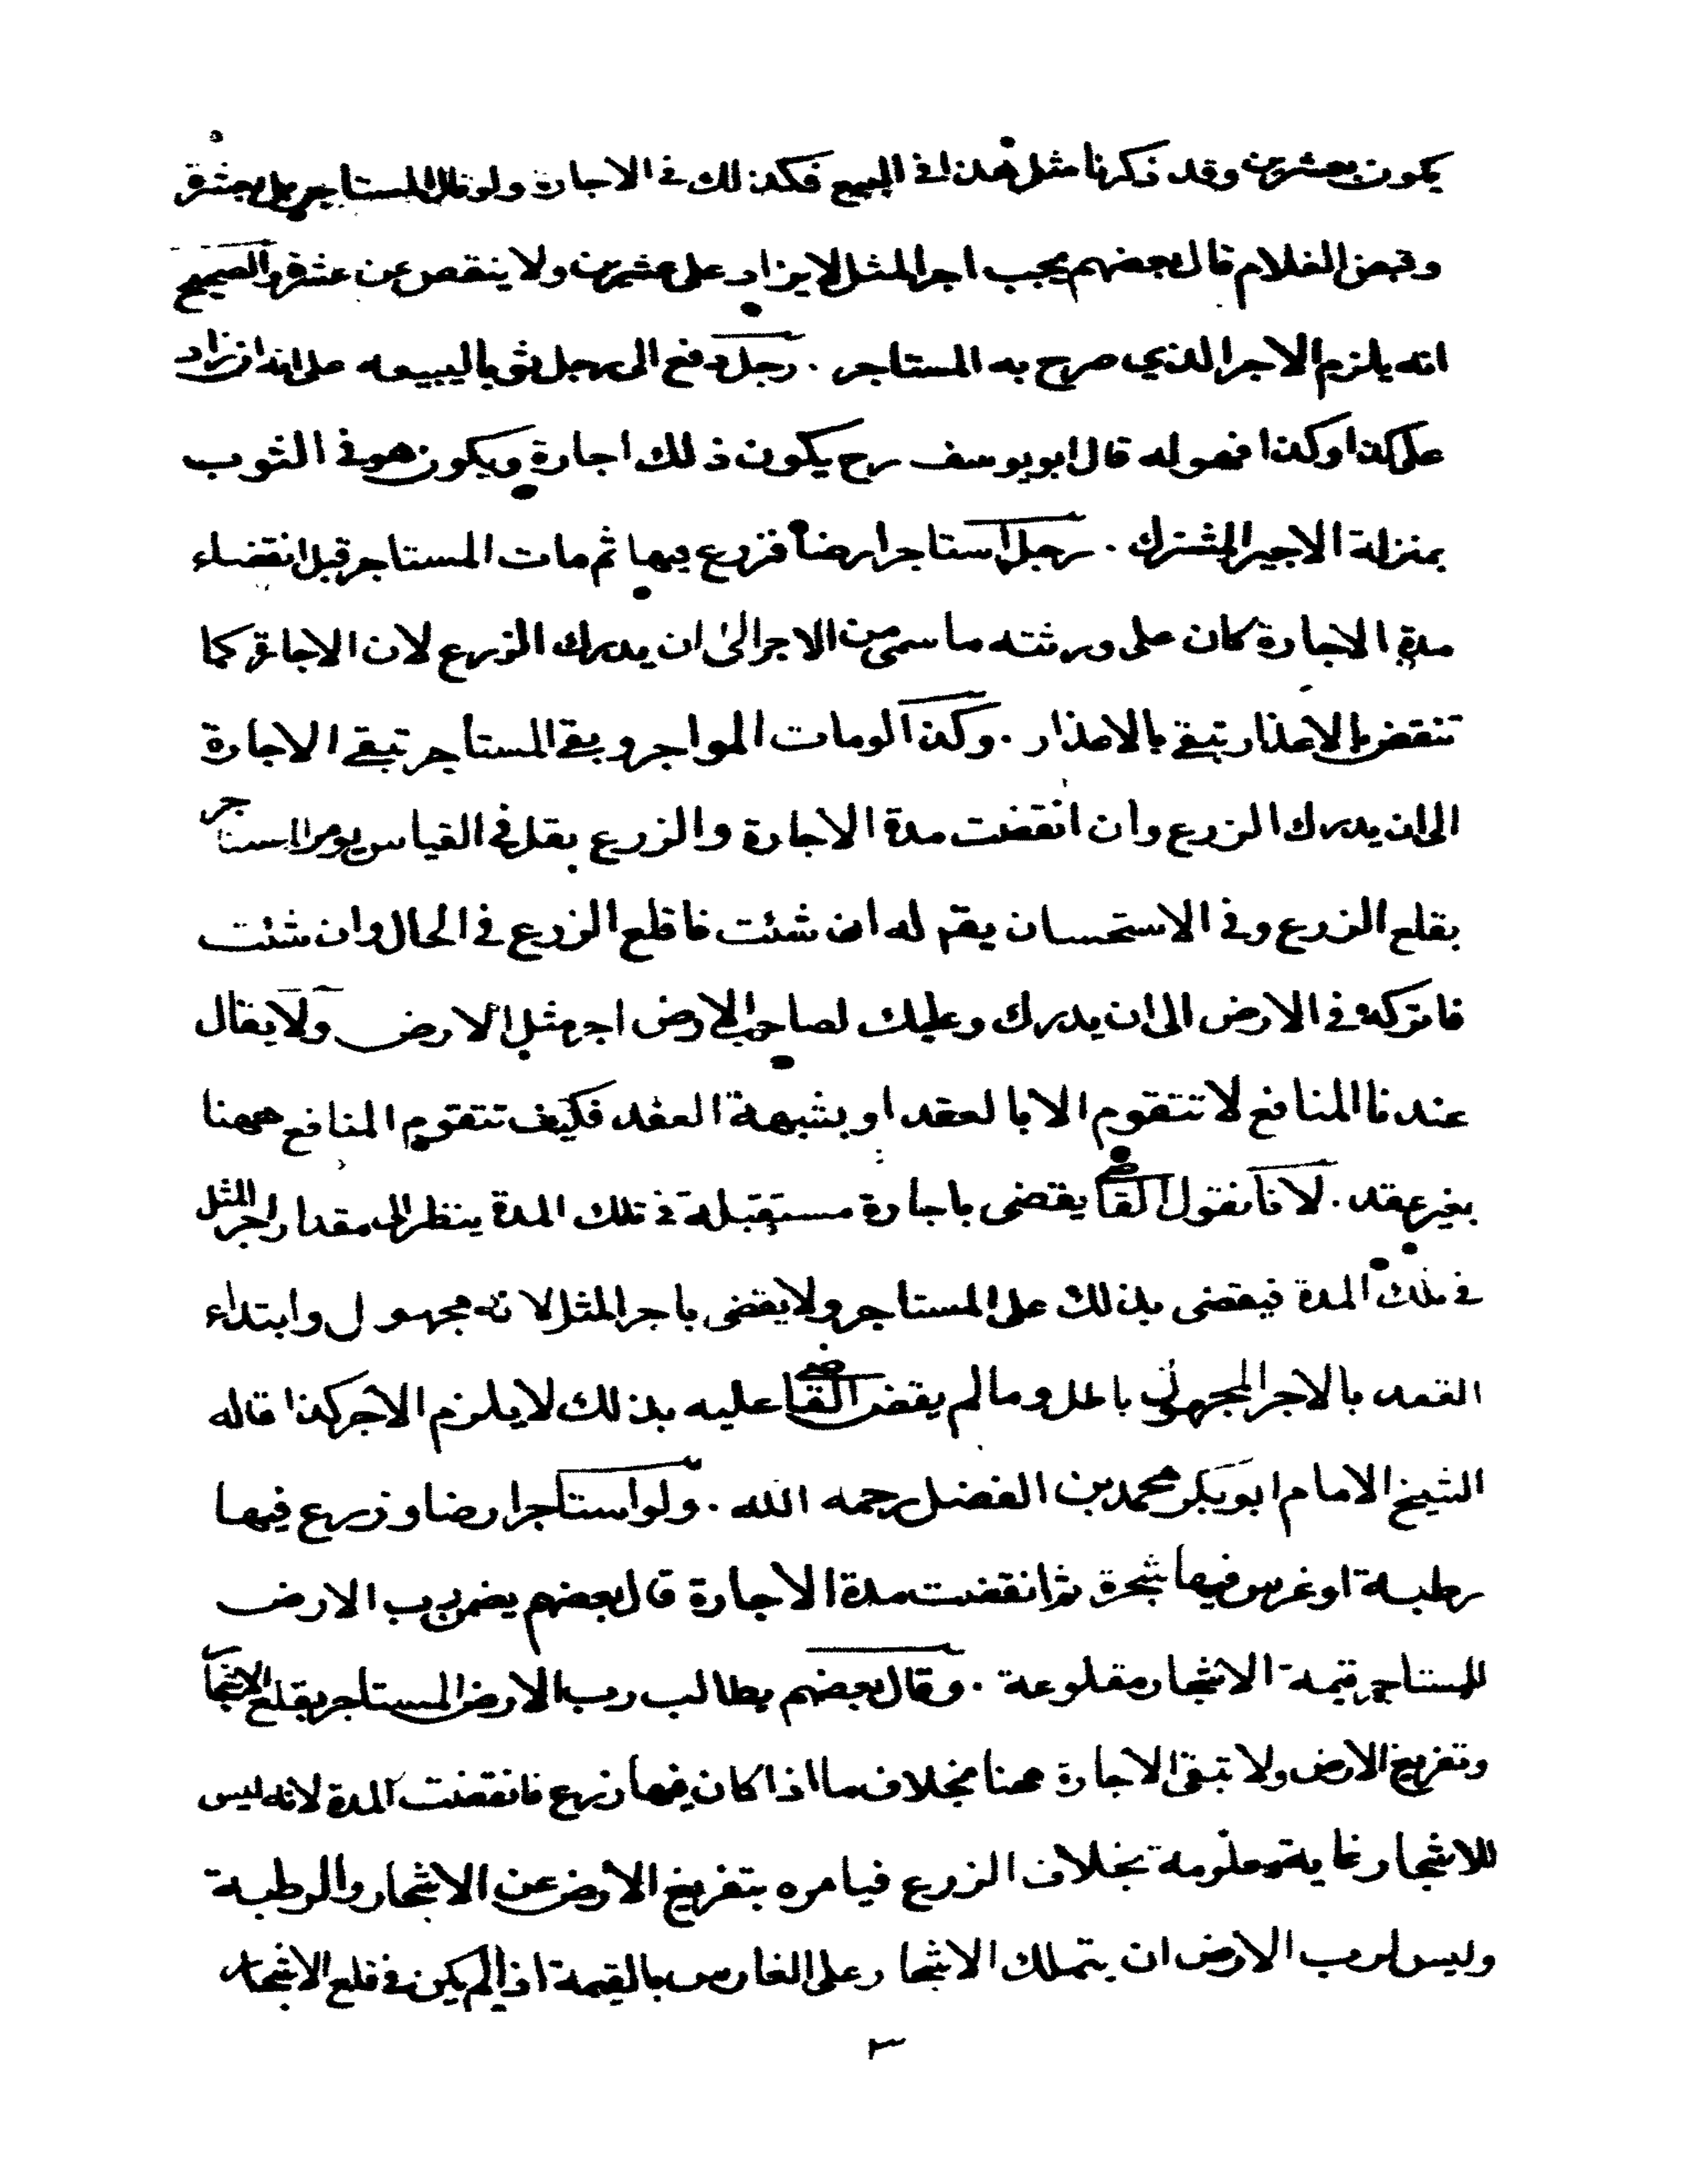 يكون بعشرين وقد ذكرنا مثل هذا في البيع فكذلك في الاجارة ولو قال المستاجر بل بعشرة
وقبض الغلام قال بعضهم يجب اجر المثل لا يزاد على عشرين ولا ينقص عن عشرة والصحيح
انه يلزم الاجر الذي صرح به المستاجر . رجل دفع الى رجل ثوبا ليبيعه على انه ان زاد
على كذا وكذا فهو له قال ابو يوسف رح يكون ذلك اجارة ويكون هو في الثوب
بمنزلة الاجير المشترك . رجل استاجر ارضا فزرع فيها ثم مات المستاجر قبل انقضاء
مدة الاجارة كان على ورثته ما سمى من الاجر الى ان يدرك الزرع لان الاجارة كما
تنقض بالاعذار تبقى بالاعذار . وكذا لو مات المواجر وبقى المستاجر تبقى الاجارة
الى ان يدرك الزرع وان انقضت مدة الاجارة والزرع بقل في القياس يومر المستاجر
بقلع الزرع وفي الاستحسان يقم له ان شئت فاقلع الزرع في الحال وان شئت
فاتركه في الارض الى ان يدرك وعليك لصاحب الارض اجر مثل الارض ولا يقال
عندنا المنافع لا تتقوم الا بالعقد او بشبهة العقد فكيف تتقوم المنافع ههنا
بغير عقد . لانا نقول القاضي يقضى باجارة مستقبلة في تلك المدة ينظر الى مقدار اجر المثل
في تلك المدة فيقضى بذلك على المستاجر ولا يقضى باجر المثل لانه مجهول وابتداء
القعد بالاجر المجهول باطل وما لم يقض القاضي عليه بذلك لا يلزم الاجر كذا قاله
الشيخ الامام ابو بكر محمد بن الفضل رحمه الله . ولو استاجر ارضا وزرع فيها
رطبة او غرس فيها شجرة ثم انقضت مدة الاجارة قال بعضهم يضمن رب الارض
للمستاجر قيمة الاشجار مقلوعة . وقال بعضهم يطالب رب الارض المستاجر بقلع الاشجار
وتفريغ الارض ولا تبقى الاجارة ههنا بخلاف ما اذا كان فيها زرع فانقضت المدة لانه ليس
للاشجار غاية معلومة بخلاف الزرع فيامره بتفريغ الارض عن الاشجار والرطبة
وليس لرب الارض ان يتملك الاشجار على الغارس بالقيمة اذا لم يكن في قلع الاشجار